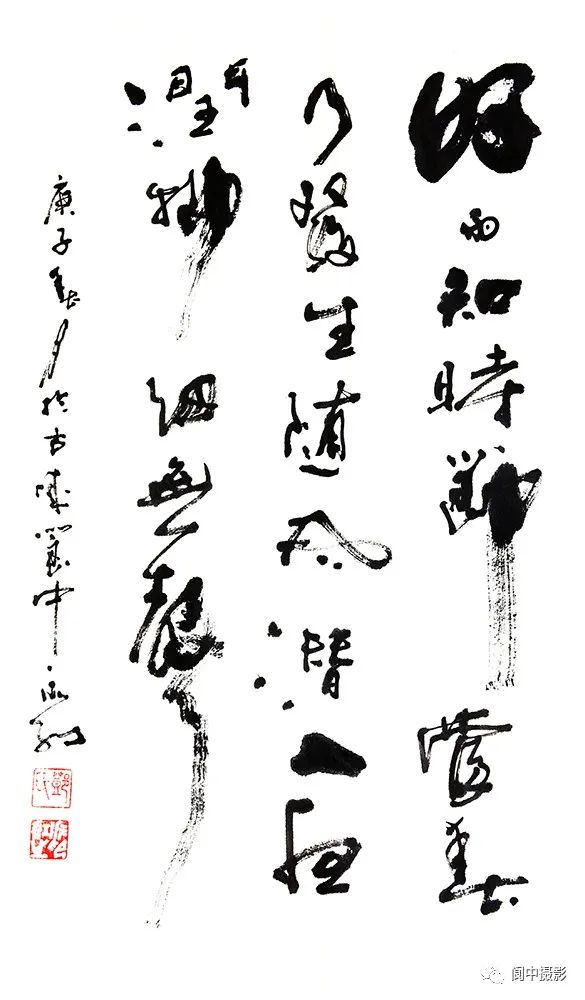 好雨知時節當春
乃發生随風潛入夜
潤物細無聲
庚子春月於古城閬中
鄭氏
阆中摄影